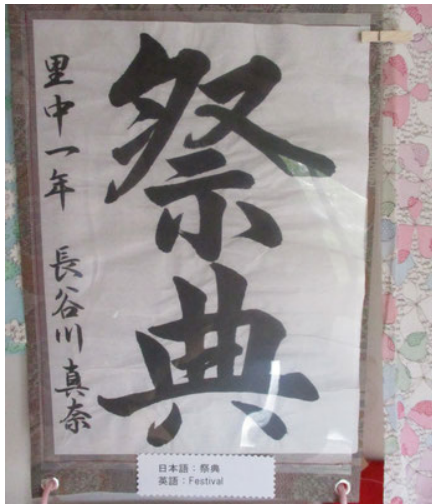 祭典
里中一年 長谷川真奈
日本語：祭典
英語：Festival